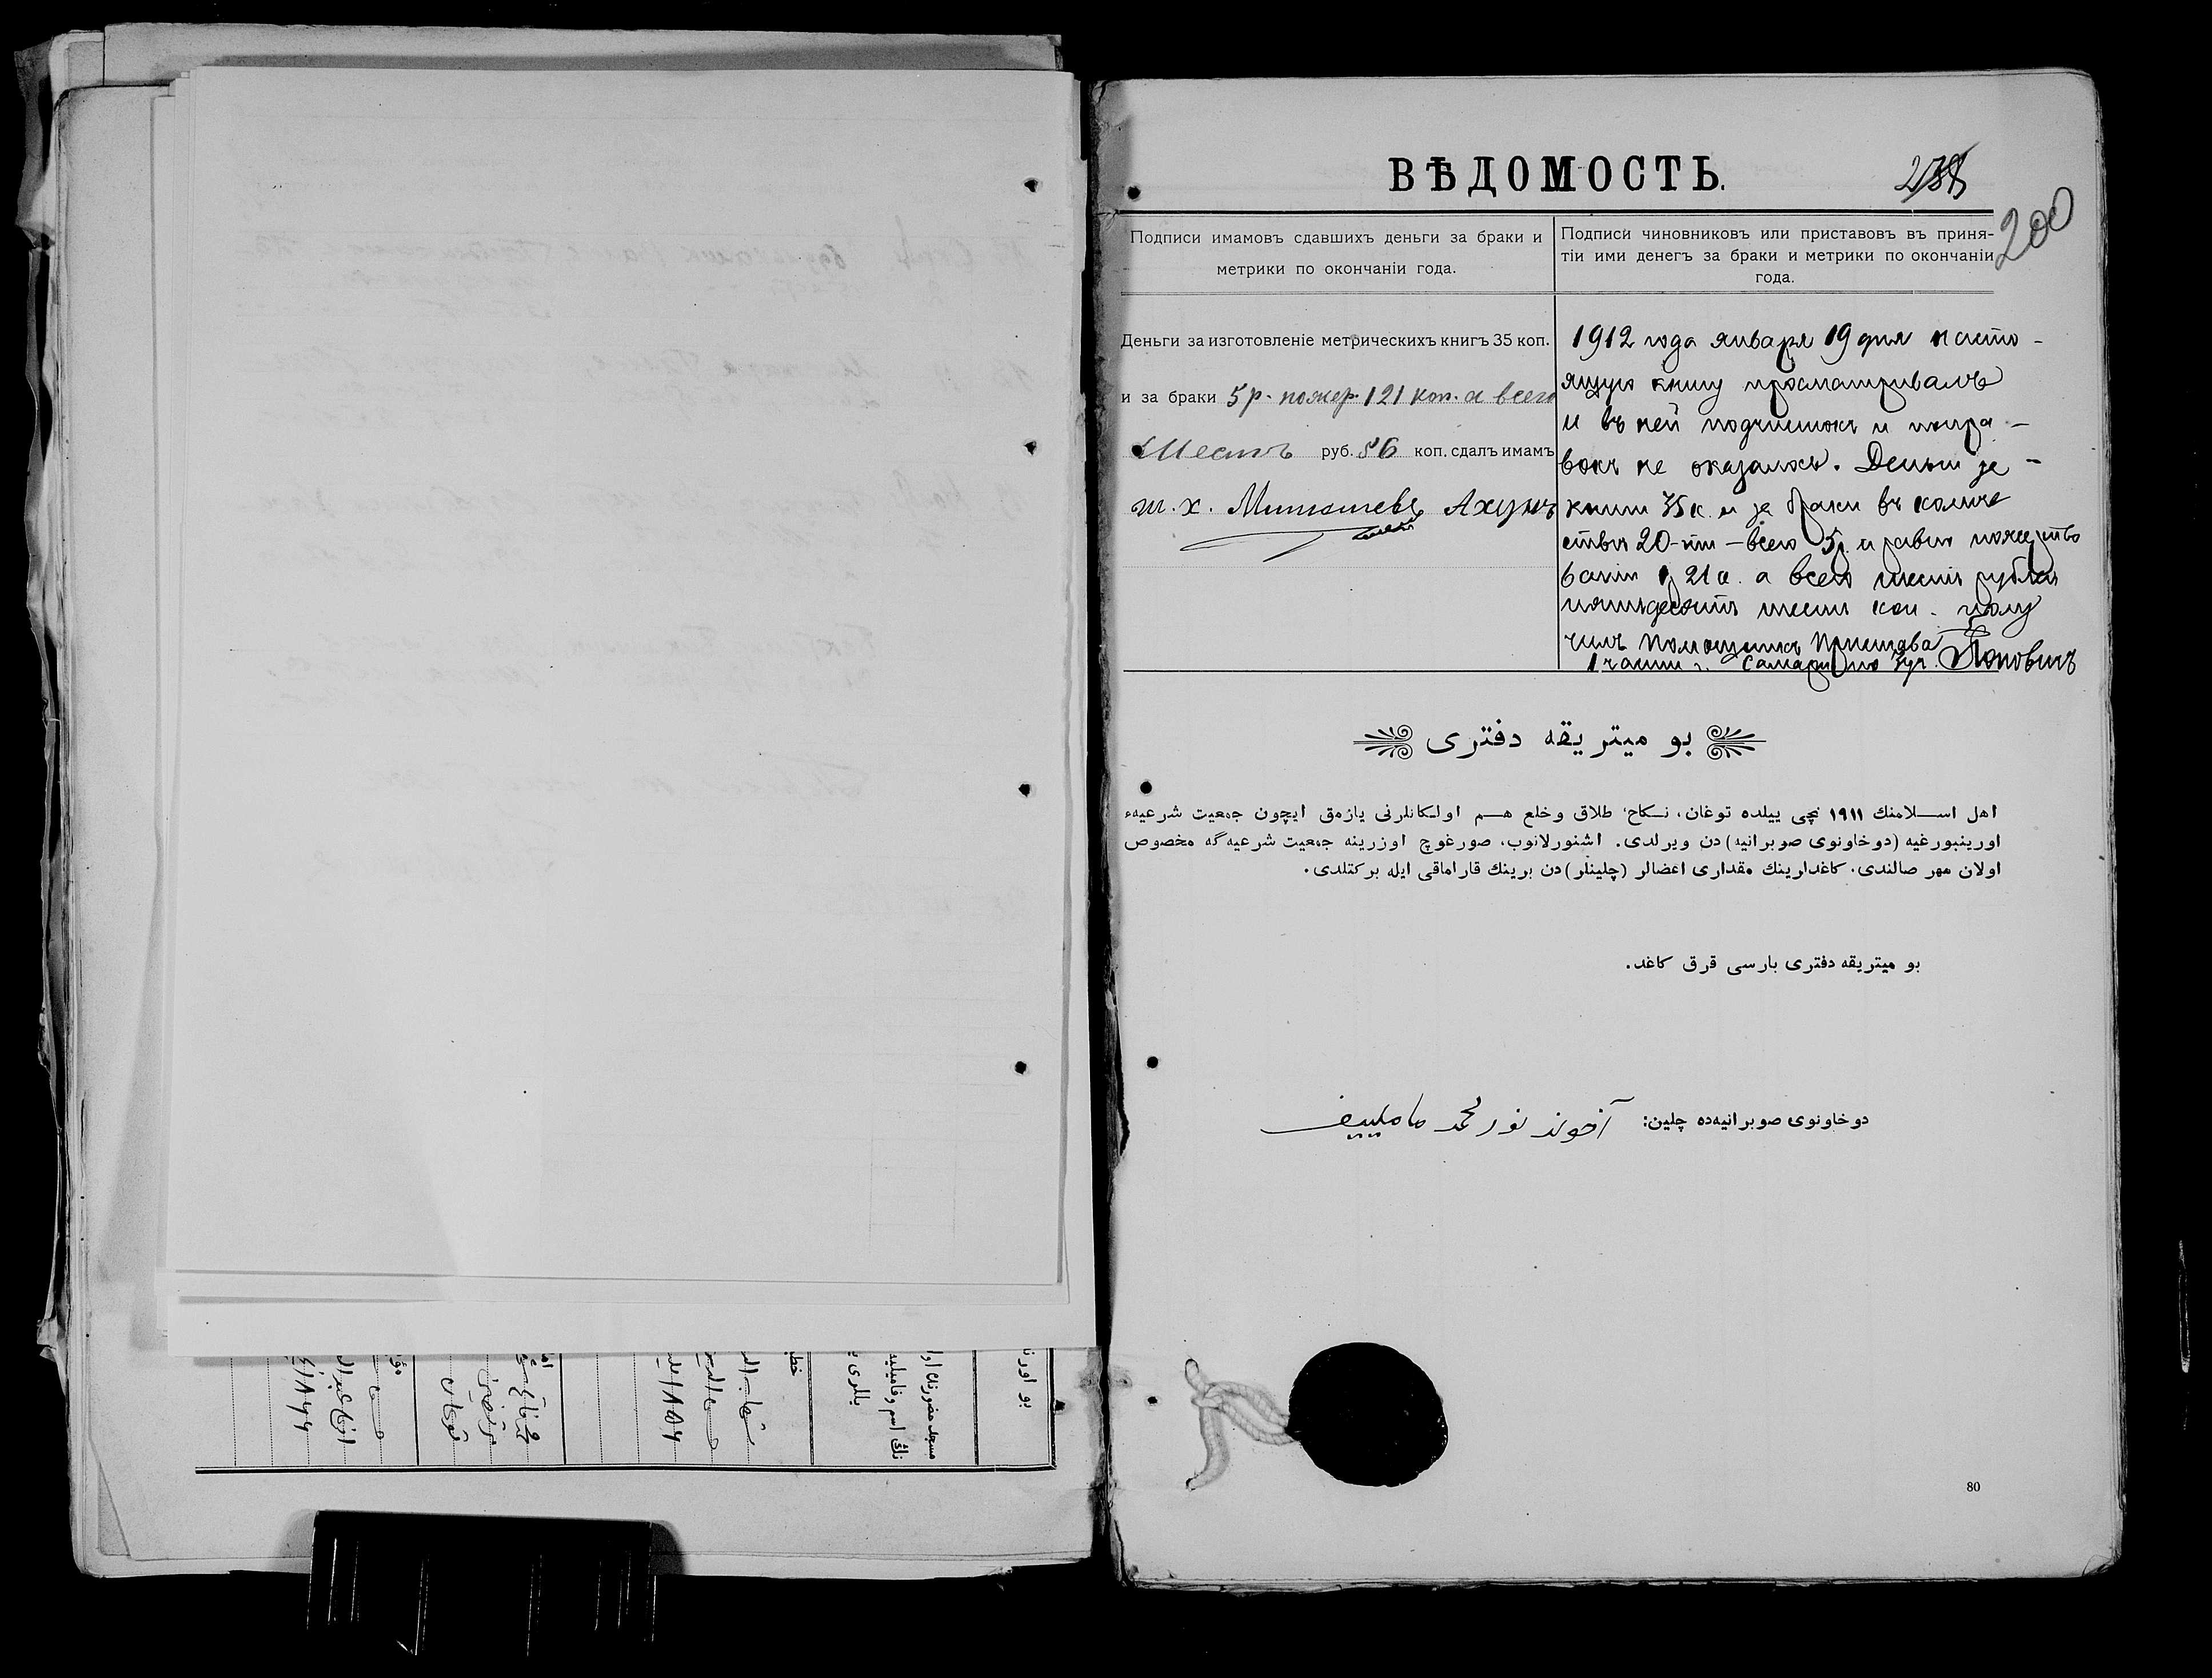 ВѢДОМОСТЬ.
200
Подписи имамовъ сдавшихъ деньги за браки и
метрики по окончаніи года.
Подписи чиновниковъ или приставовъ въ приня-
тіи ими денегъ за браки и метрики по окончаніи
года.
Деньги за изготовленіе метрическихъ книгъ 35 коп.
и за браки 5 р. пожер. 121 коп. а всего
Шесть руб. 56 коп. сдалъ имамъ
Ахунъ
1912 года января 19 дня насто-
ящую книгу просматривалъ
и въ ней подчистокъ и попра-
вокъ не оказалось. Деньги за
книги 35 к. и за браки въ количе
ства 20-ти - всего 5 р. и пожертво
ваній 1 р 21 к. а всего шесть рублей
пятьдесятъ шесть коп. полу
чилъ Помощникъ Пристава
1 части г. Поповичъ
بو ميتريقه دفترى
اهل اسلامنك ١٩١١ نچى ييلده توغان، نكاح، طلاق وخلع هم اولكانلرنى يازمق ايچون جمعيت شرعيهء
اورينبورغيه (دوخاونوى صوبرانيه) دن ويرلدى. اشنورلانوب، صورغوچ اوزرينه جمعيت شرعيه گه مخصوص
اولان مهر صالندى. كاغدلارينك مقدارى اعضالر (چلينلر) دن برينك قاراماقى ايله بركتلدى.
بو ميتريقه دفترى بارسى قرق كاغد.
دوخاونوى صوبرانيه‌ده چلين: آخوند نور محمد ماملييف
80
بو اورن
مسجد حضورنده اوا
نڭ اسم وفاميليه
ييللرى
خط